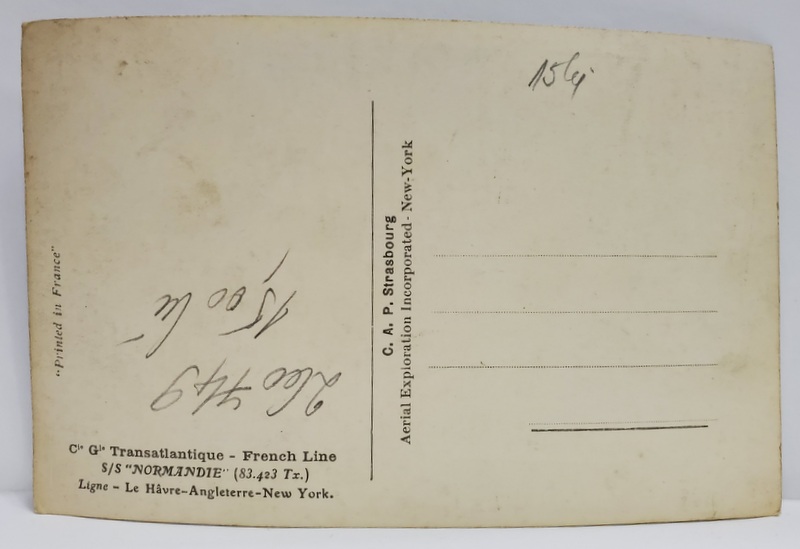 "Printed in France"
Cie Gle Transatlantique - French Line
S/S "NORMANDIE" (83.423 Tx.)
Ligne - Le Hâvre-Angleterre-New York.
C. A. P. Strasbourg
Aerial Exploration Incorporated - New-York